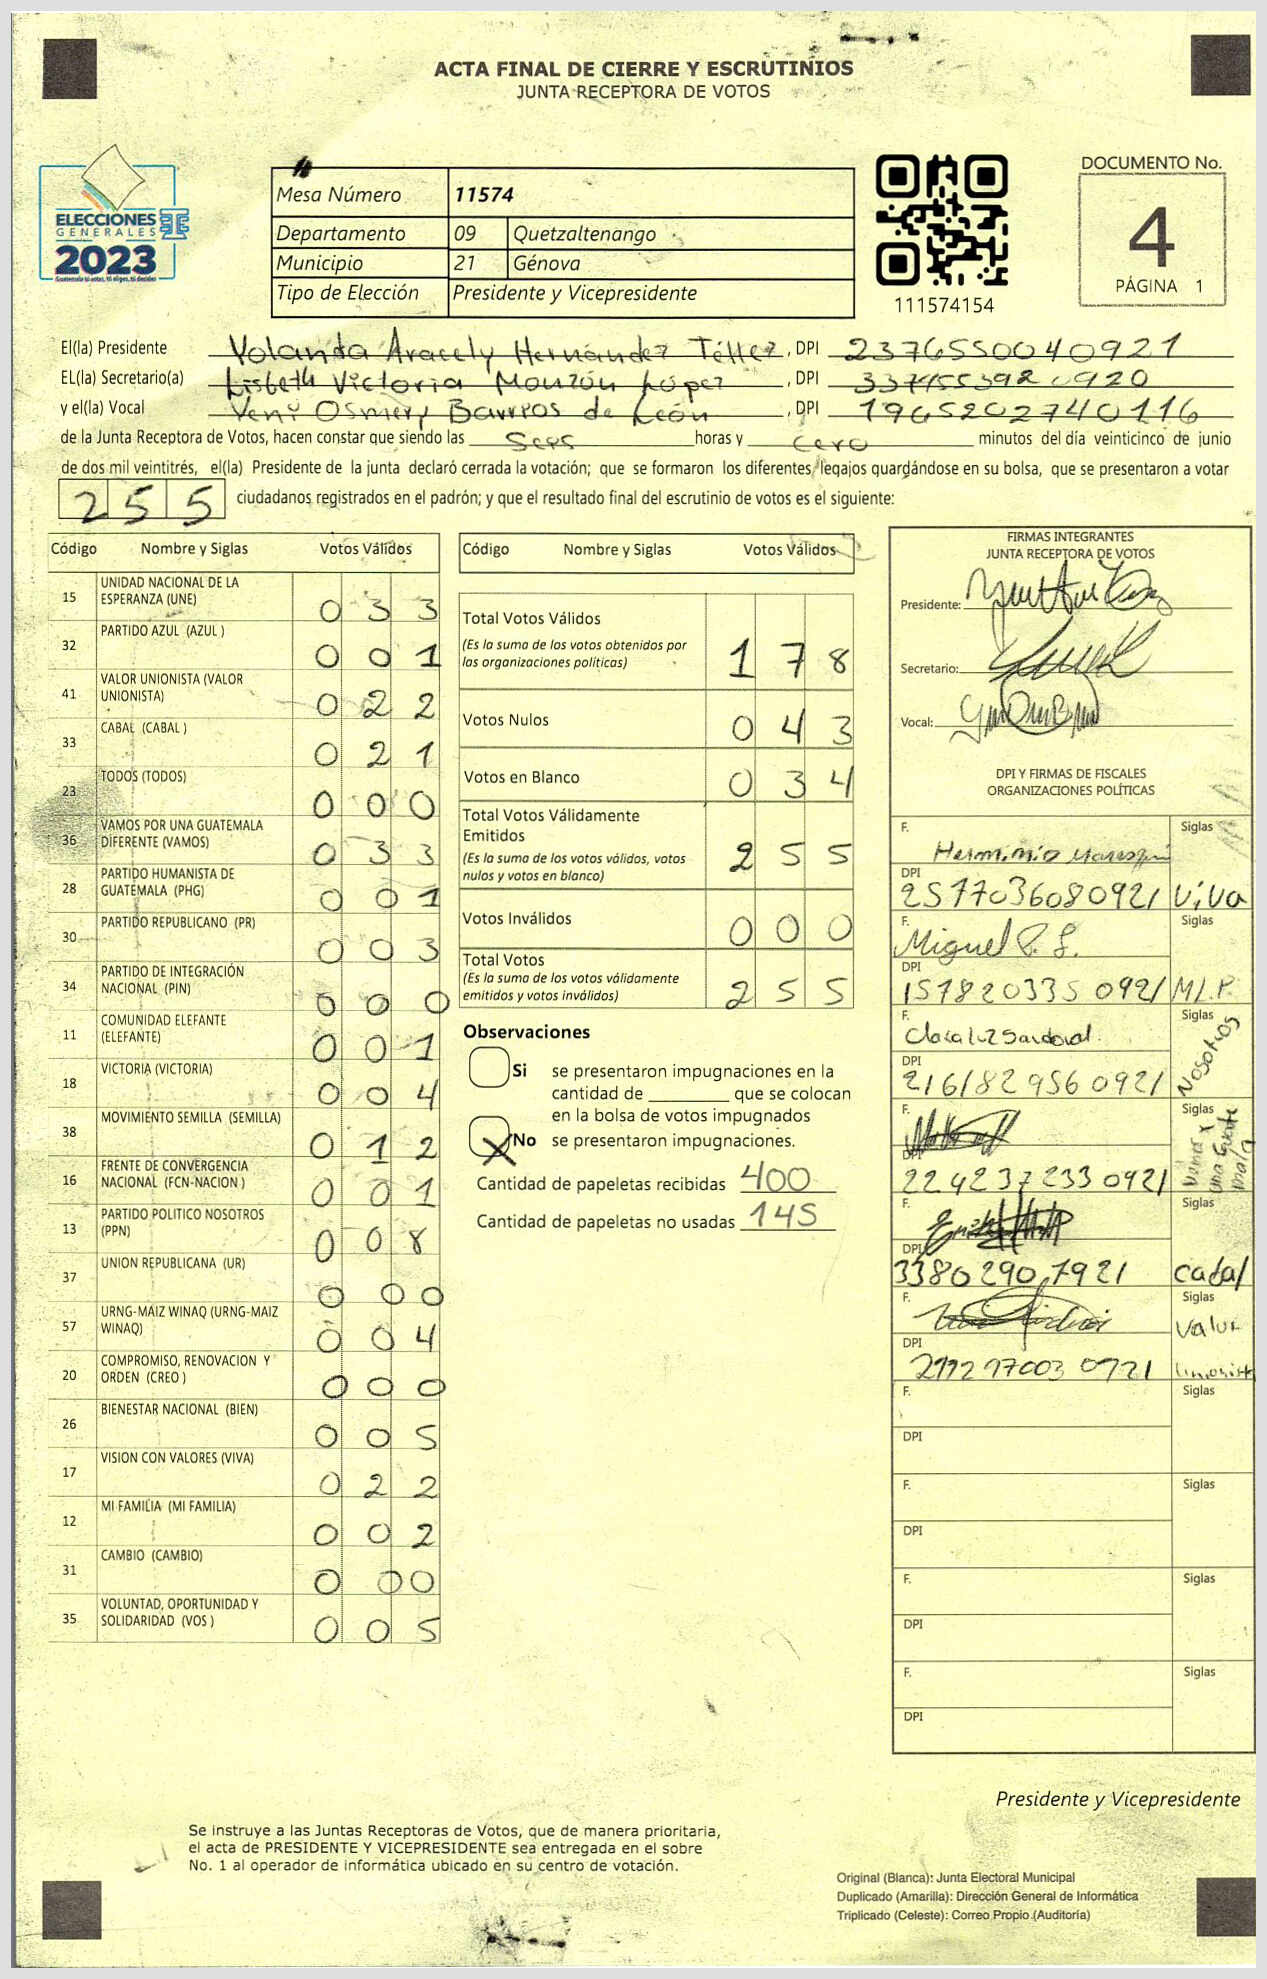 ACTA FINAL DE CIERRE Y ESCRUTINIOS
JUNTA RECEPTORA DE VOTOS
ELECCIONES
GENERALES
2023
Mesa Número 11574
Departamento 09 Quetzaltenango
Municipio 21 Génova
Tipo de Elección Presidente y Vicepresidente
111574154
DOCUMENTO No.
4
PÁGINA 1
El(la) Presidente Yolanda Aracely Hernández Téllez, DPI 2376550040921
EL(la) Secretario(a) Lisbeth Victoria Monzón López, DPI
y el(la) Vocal Yeny Osmery Barrios de León, DPI 1965202740116
de la Junta Receptora de Votos, hacen constar que siendo las Seis horas y cero minutos del día veinticinco de junio
de dos mil veintitrés, el(la) Presidente de la junta declaró cerrada la votación; que se formaron los diferentes legajos guardándose en su bolsa, que se presentaron a votar
255 ciudadanos registrados en el padrón; y que el resultado final del escrutinio de votos es el siguiente:
Código Nombre y Siglas Votos Válidos
15 UNIDAD NACIONAL DE LA
ESPERANZA (UNE) 033
32 PARTIDO AZUL (AZUL ) 001
41 VALOR UNIONISTA (VALOR
UNIONISTA) 022
33 CABAL (CABAL ) 021
23 TODOS (TODOS) 000
36 VAMOS POR UNA GUATEMALA
DIFERENTE (VAMOS) 033
28 PARTIDO HUMANISTA DE
GUATEMALA (PHG) 001
30 PARTIDO REPUBLICANO (PR) 003
34 PARTIDO DE INTEGRACIÓN
NACIONAL (PIN) 000
11 COMUNIDAD ELEFANTE
(ELEFANTE) 001
18 VICTORIA (VICTORIA) 004
38 MOVIMIENTO SEMILLA (SEMILLA) 012
16 FRENTE DE CONVERGENCIA
NACIONAL (FCN-NACION ) 001
13 PARTIDO POLITICO NOSOTROS
(PPN) 008
37 UNION REPUBLICANA (UR) 000
57 URNG-MAIZ WINAQ (URNG-MAIZ
WINAQ) 004
20 COMPROMISO, RENOVACION Y
ORDEN (CREO ) 000
26 BIENESTAR NACIONAL (BIEN) 005
17 VISION CON VALORES (VIVA) 022
12 MI FAMILIA (MI FAMILIA) 002
31 CAMBIO (CAMBIO) 000
35 VOLUNTAD, OPORTUNIDAD Y
SOLIDARIDAD (VOS ) 005
Código Nombre y Siglas Votos Válidos
Total Votos Válidos
(Es la suma de los votos obtenidos por
las organizaciones políticas) 178
Votos Nulos 043
Votos en Blanco 034
Total Votos Válidamente
Emitidos
(Es la suma de los votos válidos, votos
nulos y votos en blanco) 255
Votos Inválidos 000
Total Votos
(Es la suma de los votos válidamente
emitidos y votos inválidos) 255
Observaciones
Si se presentaron impugnaciones en la
cantidad de ________ que se colocan
en la bolsa de votos impugnados
X No se presentaron impugnaciones.
Cantidad de papeletas recibidas 400
Cantidad de papeletas no usadas 145
FIRMAS INTEGRANTES
JUNTA RECEPTORA DE VOTOS
Presidente:
Secretario:
Vocal:
DPI Y FIRMAS DE FISCALES
ORGANIZACIONES POLÍTICAS
F. Siglas
Herminio
DPI
2577036080921 Viva
F. Siglas
Miguel P. L.
DPI
1578203350921 M.L.P.
F. Siglas
Clara luz Sandoval
DPI
2161829560921 Nosotros
F. Siglas
DPI
2242372330921 Vamos x una Guate mala
F. Siglas
DPI
33802907921 cabal
F. Siglas
Valor
DPI
Unionista
F. Siglas
DPI
F. Siglas
DPI
F. Siglas
DPI
F. Siglas
DPI
Presidente y Vicepresidente
Se instruye a las Juntas Receptoras de Votos, que de manera prioritaria,
el acta de PRESIDENTE Y VICEPRESIDENTE sea entregada en el sobre
No. 1 al operador de informática ubicado en su centro de votación.
Original (Blanca): Junta Electoral Municipal
Duplicado (Amarilla): Dirección General de Informática
Triplicado (Celeste): Correo Propio (Auditoría)